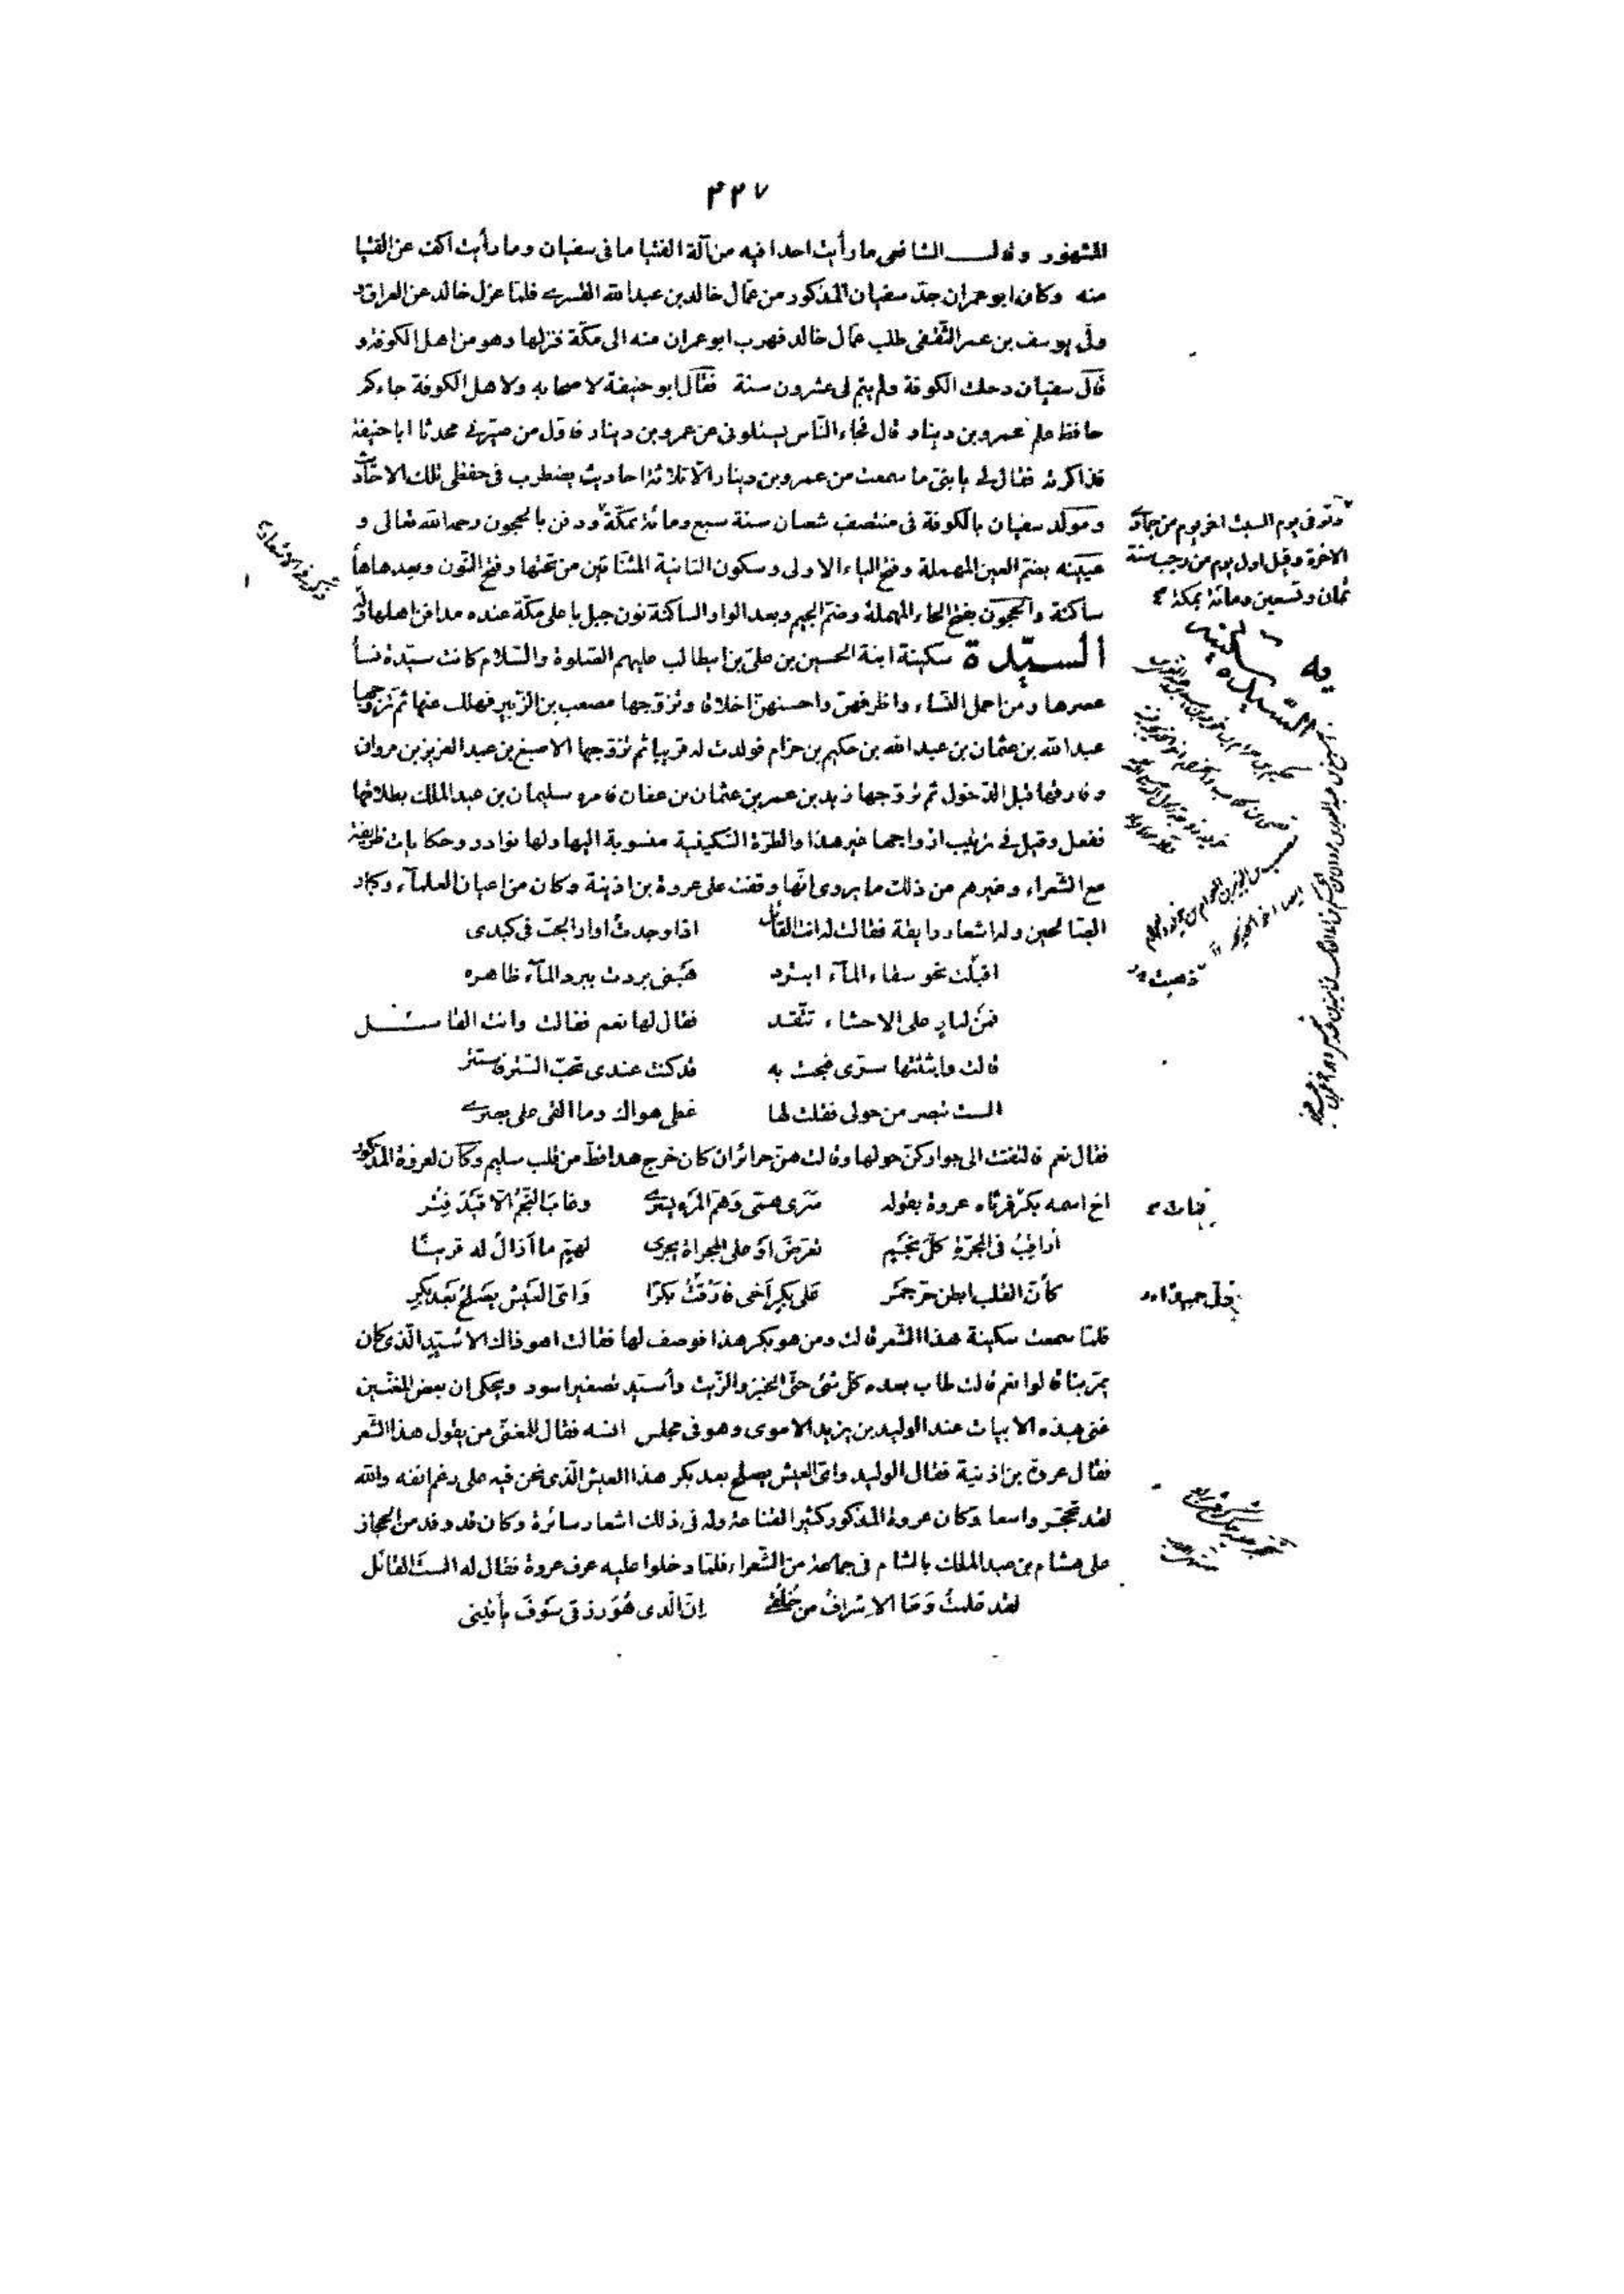 ٢٢٧
المشهور وقال الشافعى ما رأيت احدا فيه من آلة الفتيا ما فى سفيان وما رأيت اكف عن الفتيا
منه وكان ابو عمران جدّ سفيان المذكور من عمّال خالد بن عبد الله القسرى فلمّا عزل خالد عن العراق و
ولّى يوسف بن عمر الثّقفى طلب عمّال خالد فهرب ابو عمران منه الى مكّة فنزلها وهو من اهل الكوفة و
قال سفيان دخلت الكوفة ولم يتم لى عشرون سنة فقال ابو حنيفة لاصحابه ولاهل الكوفة جاءكم
حافظ علم عمرو بن دينار قال فجاء النّاس يسئلونى عن عمرو بن دينار فاوّل من صيّرنى محدثا ابا حنيفة
فذاكرته فقال لى يا بنىّ ما سمعت من عمرو بن دينار الّا ثلاثة احاديث يضطرب فى حفظى تلك الاحاديث
ومولد سفيان بالكوفة فى منتصف شعبان سنة سبع ومائة بمكّة ودفن بالحجون رحمه الله تعالى و
عيينه بضمّ العين المهملة وفتح الياء الاولى وسكون الثانية المثنّاتين من تحتها وفتح النّون وبعدها هأ
ساكنة والحجون بفتح الحاء المهملة وضمّ الجيم وبعد الواو الساكنة نون جبل باعلى مكّة عنده مدافن اهلها
السيّدة سكينة ابنة الحسين بن علىّ بن ابيطالب عليهم الصّلوة والسّلام كانت سيّدة نسأ
عصرها ومن اجمل النّساء واظرفهنّ واحسنهنّ اخلاقا وتزوّجها مصعب بن الزّبير فهلك عنها ثم تزوّجها
عبد الله بن عثمان بن عبد الله بن حكيم بن حزام فولدت له قريبا ثم تزوّجها الاصبغ بن عبد العزيز بن مروان
وفارقها قبل الدّخول ثم تزوّجها زيد بن عمر بن عثمان بن عفان فامره سليمان بن عبد الملك بطلاقها
ففعل وقيل فى ترتيب ازواجها غير هذا والطّرّة السّكينية منسوبة اليها ولها نوادر وحكايات ظريفة
مع الشّعراء وغيرهم من ذلك ما يروى انّها وقفت على عروة بن اذينة وكان من اعيان العلمآء وكبار
الصّالحين وله اشعار رايقة فقالت له انت القائل اذا وجدت أوار الحبّ فى كبدى
اقبلت نحو سقاء المآء ابترد هبنى بردت ببرد المآء ظاهره
فمن لنار على الاحشاء تتّقد فقال لها نعم فقالت وانت القائل
قالت وابثثتها سرّى فبحت به قد كنت عندى تحبّ السّتر فاستتر
الست تبصر من حولى فقلت لها غطى هواك وما القى على بصرى
فقال نعم فالتفتت الى جوار كنّ حولها وقالت هنّ حرائر ان كان خرج هذا قطّ من قلب سليم وكان لعروة المذكور
اخ اسمه بكر فرثاه عروة بقوله سَرَى همّى وَهَمّ المَرء يسرى وغابَ النّجمُ الّا قَيدَ فِتْر
أراقِبُ فى المجرّةِ كلّ نجم تعرّضَ أوْ على المجراة يجرى لهمّ ما أزالُ له قرينًا
كأنّ القلب ابطن حرّ جمر على بكرٍ أخى فارقتُ بكرًا وَاىّ العيش يصلح بعد بكرِ
فلمّا سمعت سكينة هذا الشّعر قالت ومن هو بكر هذا فوصف لها فقالت اهو ذاك الاسيّد الّذى كان
يمرّ بنا قالوا نعم قالت طاب بعده كلّ شئ حتّى الخبز والزّيت وأسيّد تصغير اسود ويحكى ان بعض المغنّين
غنى هذه الابيات عند الوليد بن يزيد الاموى وهو فى مجلس انسه فقال للمغنّى من يقول هذا الشّعر
فقال عروة بن اذينة فقال الوليد واىّ العيش يصلح بعد بكر هذا العيش الّذى نحن فيه على رغم انفه والله
لقد تحجّر واسعا وكان عروة المذكور كثير القناعة وله فى ذلك اشعار سائرة وكان قد وفد من الحجاز
على هشام بن عبد الملك بالشام فى جماعة من الشّعراء فلمّا دخلوا عليه عرف عروة فقال له الست القائل
لقد علمتُ وَمَا الاسرافُ من خُلُقى إنّ الّذى هُوَ رزقى سَوفَ يأتينى
وتوفى يوم السبت اخر يوم من جمادى
الاخرة وقيل اول يوم من رجب سنة
ثمان وتسعين ومائة بمكة
السيدة سكينه
ذهبت